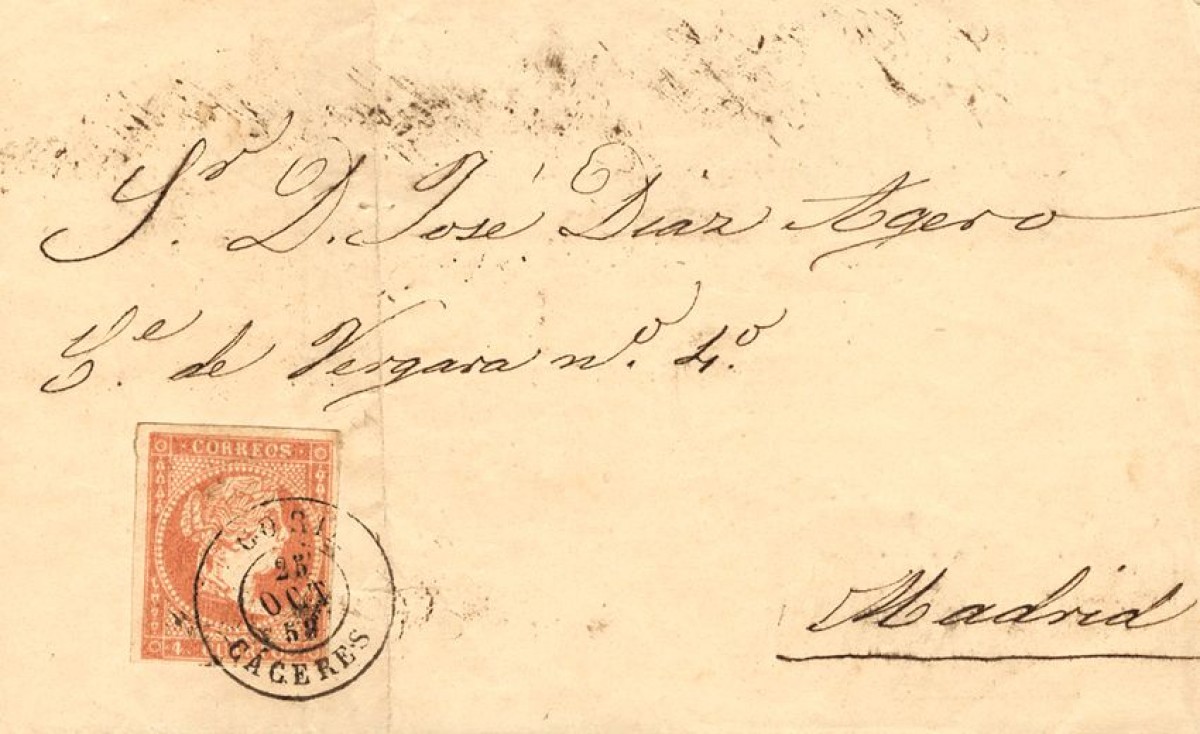 Sr. D. José Diaz Agero
Ce. de Vergara nº. 4º.
CORREOS
CORIA
25
OCT
59
CÁCERES
Madrid